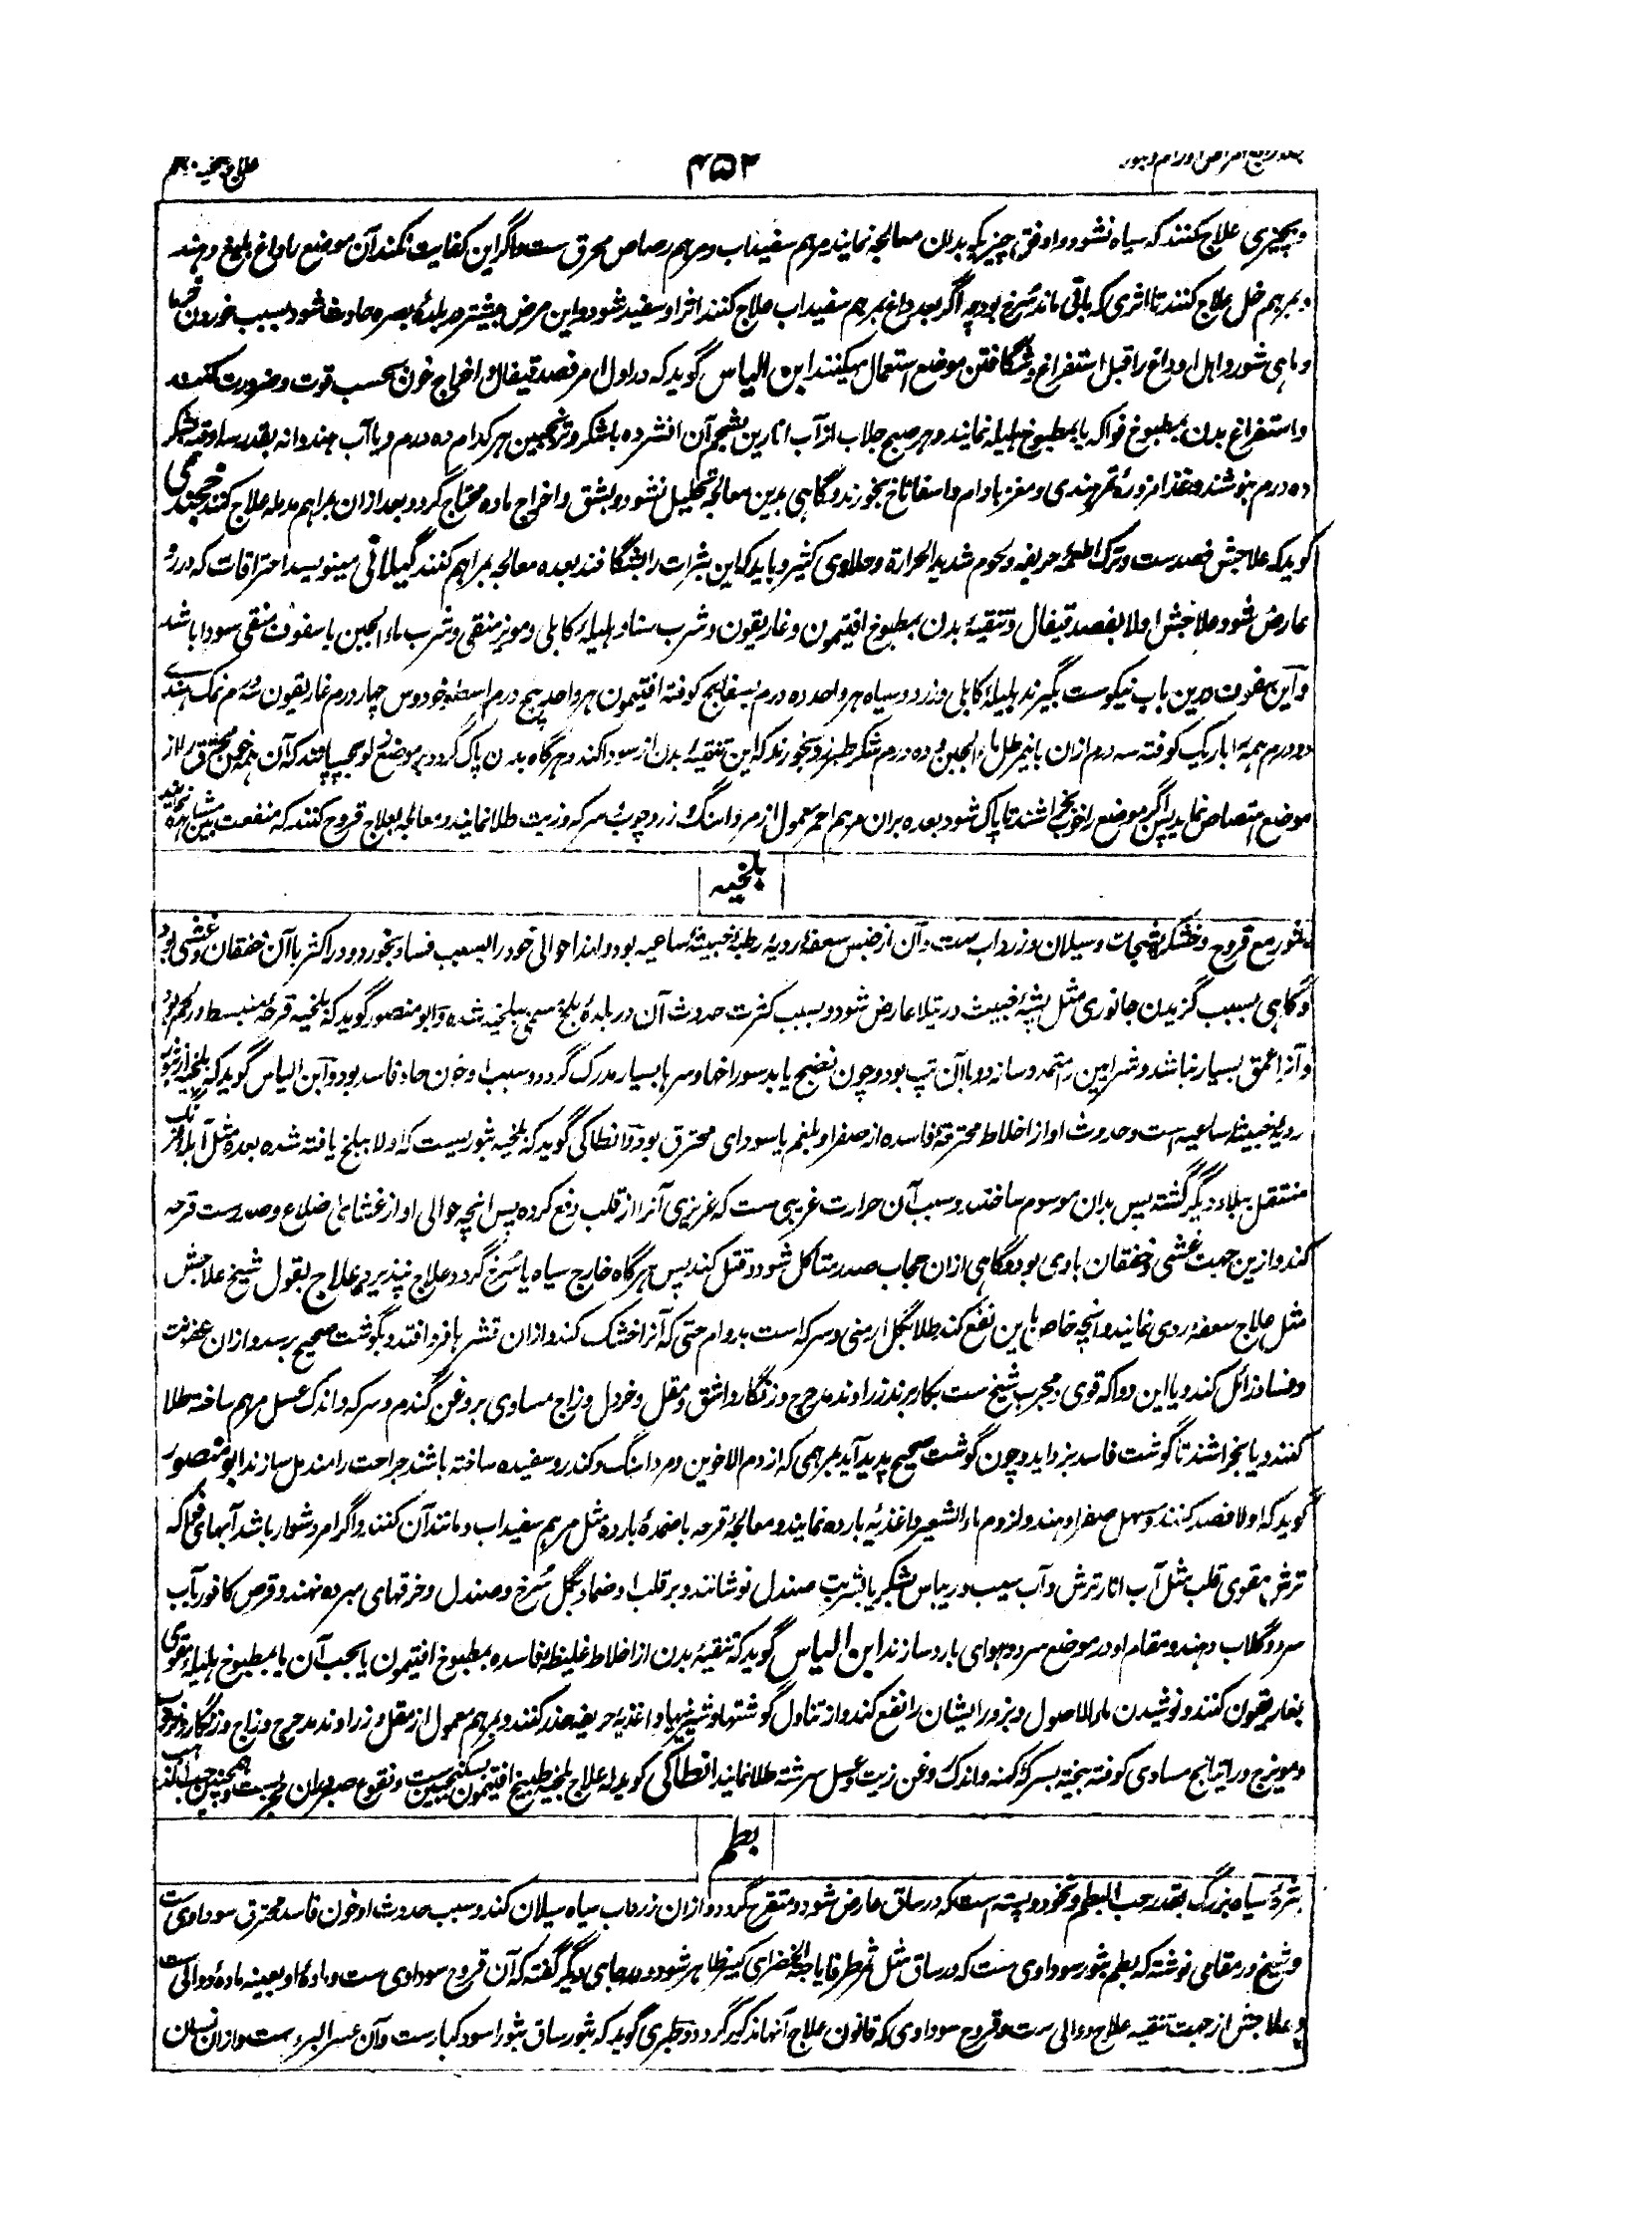 ۴۵۲
و بچیزی علاج کنند که سیاه نشود و اوفق چیزیکه بدان معالجه نمایند مرهم سفیداب و مرهم رصاص محرق ست و اگر این کفایت نکند آن موضع را داغ بلیغ دهند
و بمرهم خل علاج کنند تا اثری که باقی ماند سرخ بود چه اگر بعد داغ بمرهم سفیداب علاج کنند اثر او سفید شود و این مرض بیشتر در بلدهٔ بصره حادث شود بسبب خوردن خرما
و ماهی شور و اهل او داغ را قبل استفراغ و شگافتن موضع استعمال میکنند ابن الیاس گوید که در اول امر فصد قیفال و اخراج خون بحسب قوت و ضرورت کنند
و استفراغ بدن بمطبوخ فواکه یا بمطبوخ هلیله نمایند و هر صبح جلاب از آب انارین بشحم آن افشرده باشکر و ترنجبین هر کدام ده درم و یا آب هندوانه بقدر سه اوقیه بشکر
ده درم بنوشند و غذا مزورهٔ تمر هندی و مغز بادام و اسفاناخ بخورند و گاهی بدین معالجه تحلیل نشود و بشق و اخراج ماده محتاج گردد و بعد ازان بمراهم مدمله علاج کنند خجندی
گوید که علاجش فصد ست و ترک اطعمهٔ حریفه و لحوم شدید الحرارة و حلاوی کثیر و باید که این بثرات را بشگافند بعده معالجه بمراهم کنند گیلانی مینویسد احتراقات که در رو
عارض شود علاجش اولا بفصد قیفال و تنقیهٔ بدن بمطبوخ افتیمون و غاریقون و شرب سنا و هلیلهٔ کابلی و مویز منقی و شرب ماء الجبن با سفوف منقی سودا باشد
و این سفوف درین باب نیکوست بگیرند هلیلهٔ کابلی و زرد و سیاه هر واحد ده درم بسفایج کوفته افتیمون هر واحد پنج درم اسطوخودوس چهار درم غاریقون سه درم نمک هندی
دو درم همه را باریک کوفته سه درم ازان با نیم رطل ماء الجبن و ده درم شکر طبرزد بخورند که این تنقیهٔ بدن از سودا کند و هرگاه بدن پاک گردد بر موضع زلو بچسپانند که آن همه خون محترق را از
موضع امتصاص نماید پس اگر موضع را خوب بخراشند تا پاک شود بعده بران مرهم احمر معمول از مردارسنگ و زردچوبه و سرکه و زیت طلا نمایند و معالجه بعلاج قروح کنند که منفعت بین مشاهده نمایند
بلخیه
بثور مع قروح و خشکریشجات و سیلان و زرداب ست و آن از جنس سعفهٔ ردیهٔ رطبهٔ خبیثهٔ ساعیه بود و لهذا حوالی خود را بسبب فساد بخورد و در اکثر با آن خفقان و غشی بود
و گاهی بسبب گزیدن جانوری مثل پشهٔ خبیث در بتلا عارض شود و بسبب کثرت حدوث آن در بلدهٔ بلخ مسمی ببلخیه شده و ابو منصور گوید که بلخیه قرحهٔ منبسط در لحم بود
و آنرا عمق بسیار نباشد و شرایین را متمدد سازد و با آن تپ بود و چون نضج یابد سوراخها و سرها بسیار مدرک گردد و سبب او خون حاد فاسد بود و ابن الیاس گوید که بلخیه از بثور
ردیهٔ خبیثهٔ ساعیه است و حدوث او از اخلاط محترقهٔ فاسده از صفرا و بلغم یا سودای محترق بود و انطاکی گوید که بلخیه بثوریست که اولا ببلخ یافته شده بعده مثل آبلهٔ فرنگ
منتقل ببلاد دیگر گشته پس بدان موسوم ساختند و سبب آن حرارت غریبی ست که غریزی آنرا از قلب دفع کرده پس انچه حوالی او از غشای اضلاع و صدر ست قرحه
کند و ازین جهت غشی و خفقان با وی بود و گاهی ازان حجاب صدر متاکل شود و قتل کند پس هرگاه خارج سیاه یا سرخ گردد علاج نپذیرد علاج بقول شیخ علاجش
مثل علاج سعفهٔ ردی نمایند و انچه خاص باین نفع کند طلا بگل ارمنی و سرکه است بدوام حتی که آنرا خشک کند و ازان قشرها فرو افتد و بگوشت صحیح برسد و ازان عفونت
و فساد زائل کند و یا این دوا که قوی و مجرب شیخ ست بکار برند زراوند مدحرج و زنگار و اشق و مقل و خردل و زاج مساوی بروغن گندم و سرکه و اندک عسل مرهم ساخته طلا
کنند و یا بخراشند تا گوشت فاسد بزداید و چون گوشت صحیح پدید آید بمرهمی که از دم الاخوین و مردارسنگ و کندر و سفیده ساخته باشند جراحت را مندمل سازند ابو منصور
گوید که اولا فصد کنند و مسهل صفرا دهند و لزوم ماء الشعیر و اغذیه بارده نمایند و معالجهٔ قرحه با ضمدهٔ بارده مثل مرهم سفیداب و مانند آن کنند و اگر امر دشوار باشد آبهای فواکه
ترش مقوی قلب مثل آب انار ترش و آب سیب و ریباس بشکر یا بشربت صندل نوشانند و بر قلب او ضماد بگل سرخ و صندل و خرقهای سرد نهند و قرص کافور بآب
سرد و گلاب دهند و مقام او در موضع سرد و هوای بارد سازند ابن الیاس گوید که تنقیهٔ بدن از اخلاط غلیظهٔ فاسده بمطبوخ افتیمون یا بحب آن یا بمطبوخ هلیله مقوی
بغاریقون کنند و نوشیدن ماء الاصول و بزور ایشان را نفع کند و از تناول گوشتها و شیرینیها و اغذیهٔ حریفه حذر کنند و بمرهم معمول از مقل و زراوند مدحرج و زاج و زنگار
و مویزج و راتیانج مساوی کوفته بیخته بسرکهٔ کهنه و اندک روغن زیت و عسل سرشته طلا نمایند انطاکی گوید که علاج بلخیه طبیخ افتیمون بسکنجبین ست و نقوع صبر بران مجرب ست
بطم
بثرهٔ سیاه بزرگ بقدر حب البطم و نخود و پسته است که در ساق عارض شود و متقرح گردد و ازان زرداب سیاه سیلان کند و سبب حدوث او خون فاسد محترق سوداوی ست
و شیخ در مقامی نوشته که بطم بثور سوداوی ست که در ساق مثل ثمر طرفا یا حبة الخضرای کبیر ظاهر شود و در جای دیگر گفته که آن قروح سوداوی ست و مادهٔ او بعینه مادهٔ دوالی ست
و علاجش از جهت تنقیه علاج دوالی ست و قروح سوداوی که قانون علاج آنها ذکر گردد و طبری گوید که بثور ساق بثور اسود کبار ست و آن عسر البرء ست و ازان